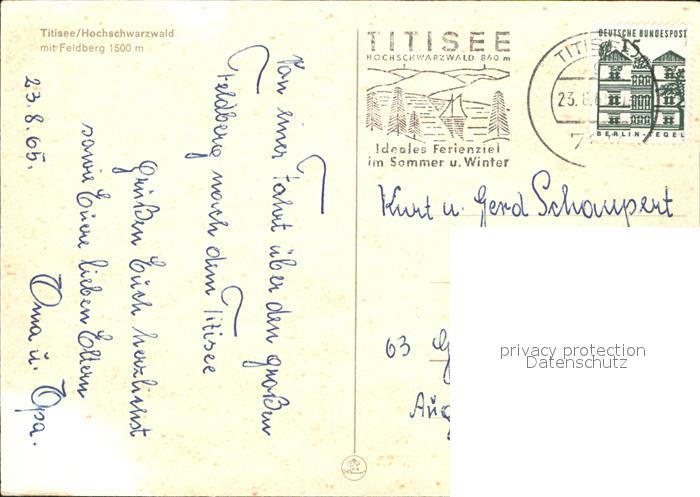 Titisee/Hochschwarzwald
mit Feldberg 1500 m
23.8.65.
Von einer Fahrt über den großen
Feldberg nach dem Titisee
Grüßen Euch herzlichst
sowie Eure lieben Eltern
Oma u. Opa.
TITISEE
HOCHSCHWARZWALD 860 m
Ideales Ferienziel
im Sommer u. Winter
TITIS
23.8.6
7
DEUTSCHE BUNDESPOST
15
BERLIN-TEGEL
Kurt u. Gerd Schaupert
63 G
Aug
privacy protection
Datenschutz